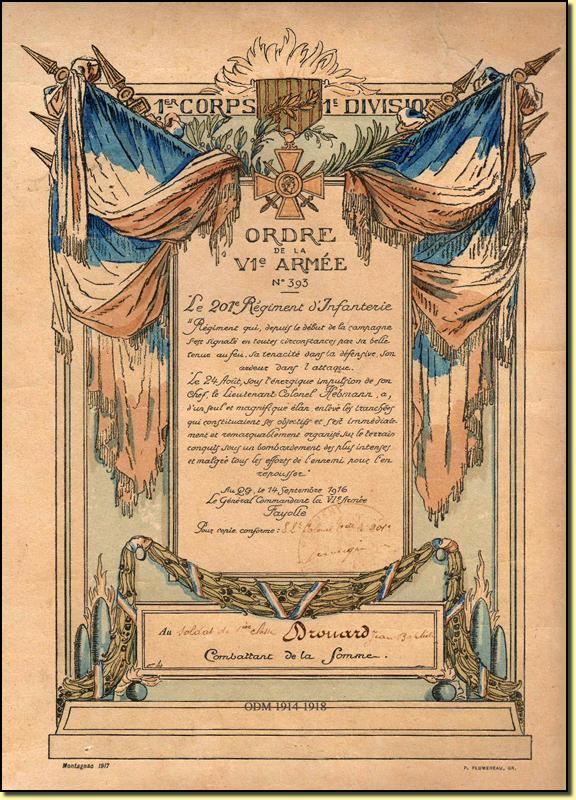 1ER CORPS 1e DIVISION
ORDRE
DE LA
VIe ARMÉE
No 393
Le 201e Régiment d'Infanterie
"Régiment qui, depuis le début de la campagne
s'est signalé en toutes circonstances par sa belle
tenue au feu, sa tenacité dans la défensive, son
ardeur dans l'attaque.
Le 24 Août, sous l'énergique impulsion de son
Chef, le Lieutenant Colonel Hebmann, a,
d'un seul et magnifique élan, enlevé les tranchées
qui constituaient ses objectifs et s'est immédiate-
ment et remarquablement organisé sur le terrain
conquis sous un bombardement des plus intenses
et malgré tous les efforts de l'ennemi pour l'en
repousser"
Au QG, le 14 Septembre 1916
Le Général Commandant la VIe Armée
Fayolle
Pour copie conforme : Colonel
Au soldat de 1ère classe Drouard Jean
Combattant de la Somme.
ODM 1914-1918
Montagnac 1917
P. PLUMEREAU, GR.